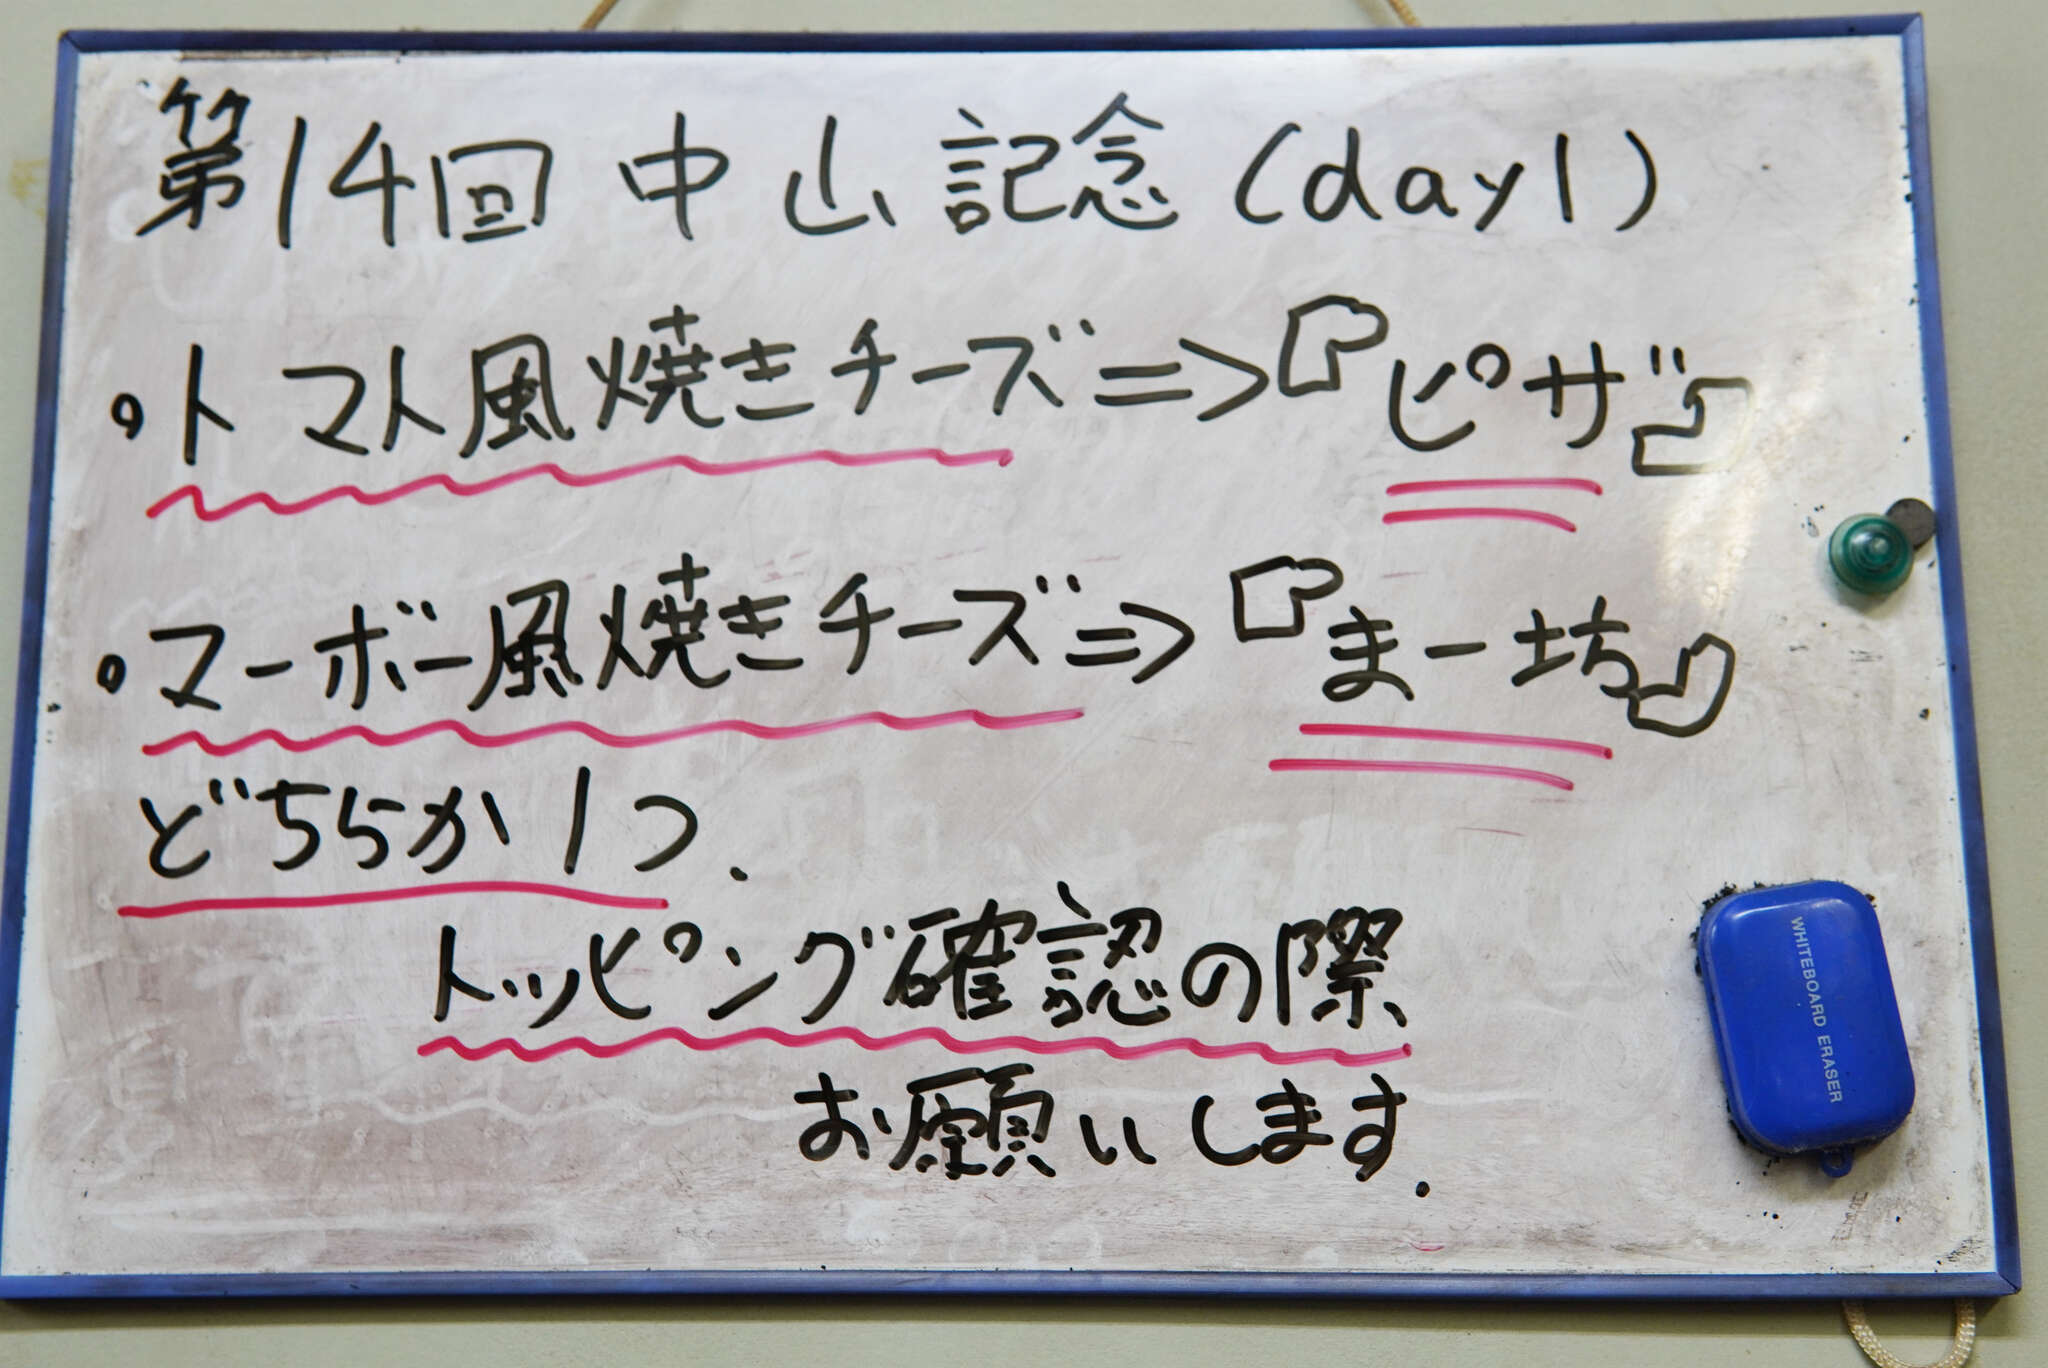 第14回 中山記念(day1)
・トマト風焼きチーズ⇒『ピザ』
・マーボー風焼きチーズ⇒『まー坊』
どちらか1つ.
トッピング確認の際
お願いします.
WHITEBOARD ERASER